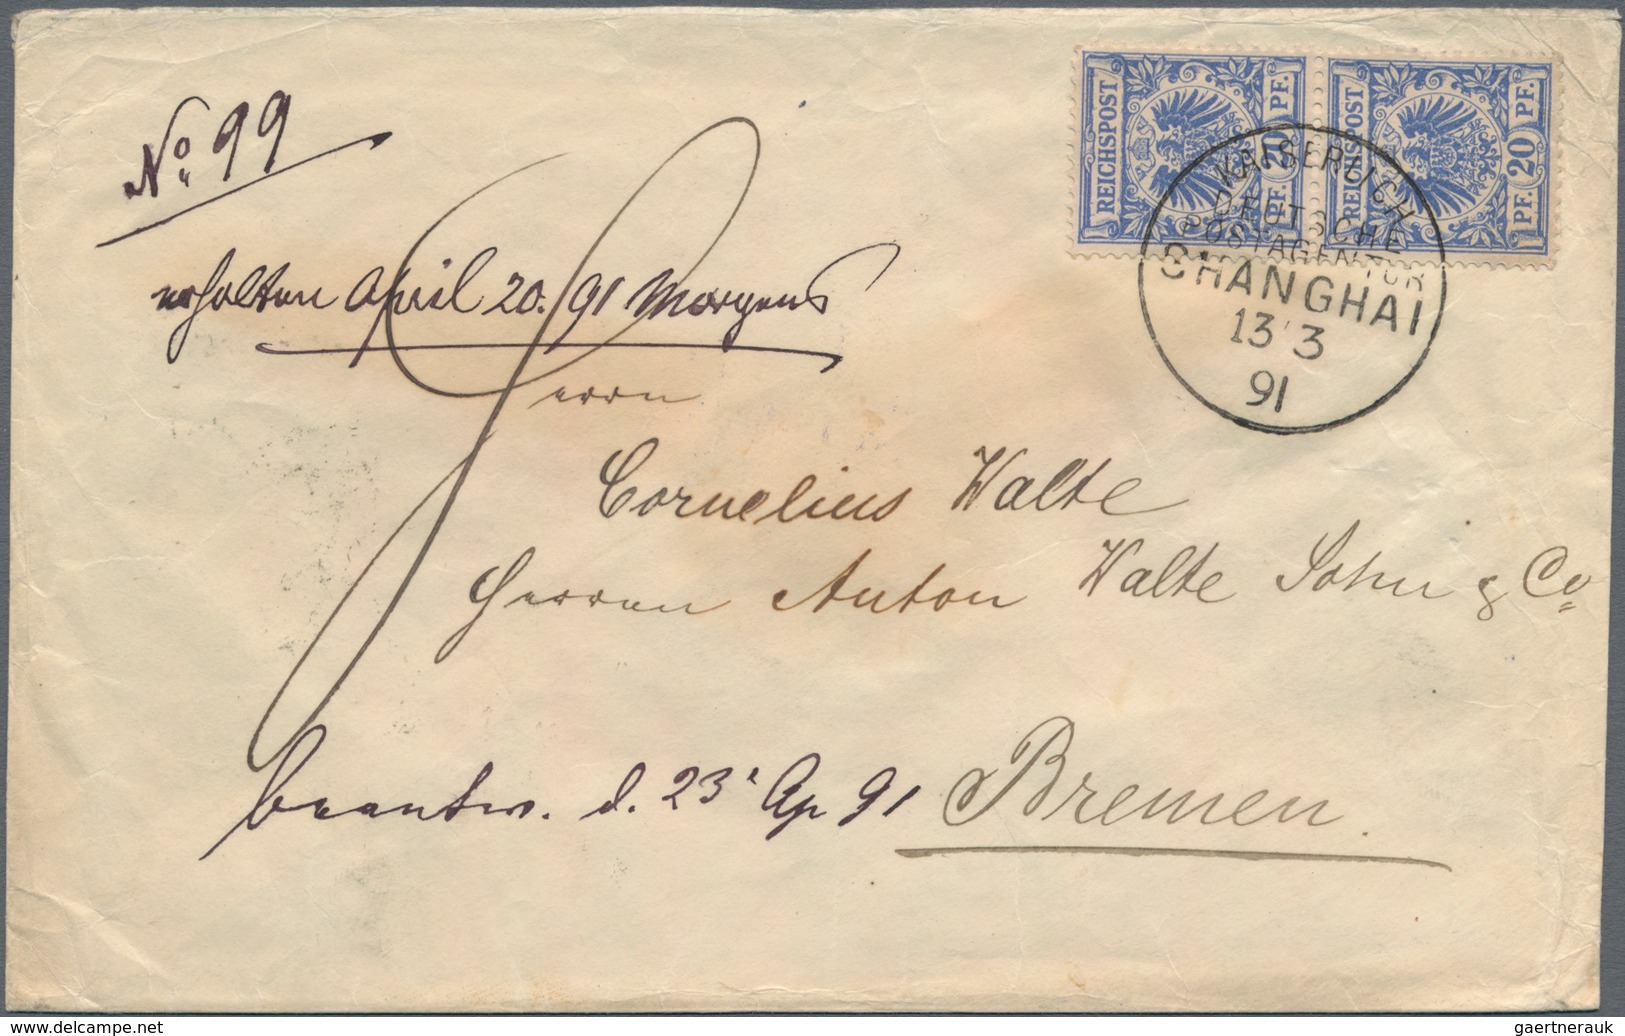 No 99
REICHSPOST 20 PF. PF.
REICHSPOST 20 PF. PF.
KAISERLICH
DEUTSCHE
POSTAGENTUR
SHANGHAI
13 3
91
erhalten April 20. /91 Morgens
Herrn
Cornelius Walte
Herren Anton Walte Sohn & Co
beantw. d. 23 Ap 91
Bremen.
www.delcampe.net
gaertnerauk